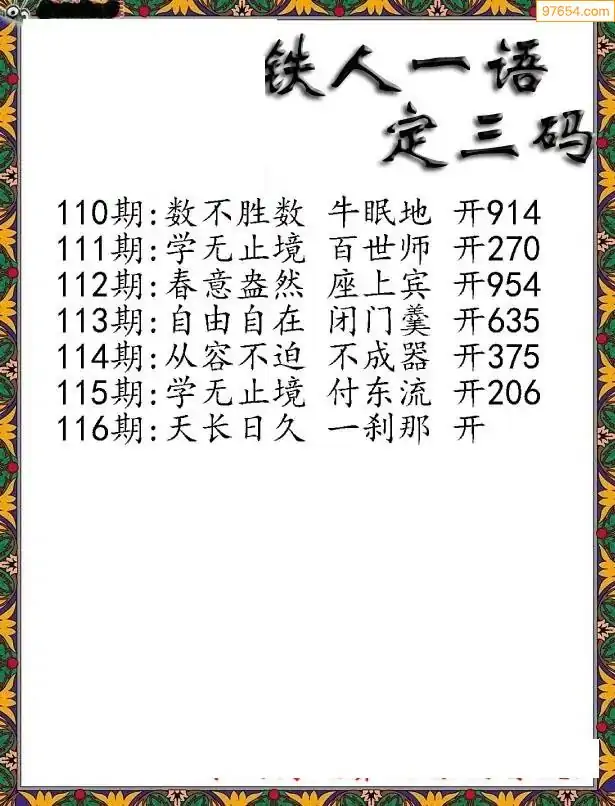 97654.com
铁人一语
定三码
110期:数不胜数 牛眠地 开914
111期:学无止境 百世师 开270
112期:春意盎然 座上宾 开954
113期:自由自在 闭门羹 开635
114期:从容不迫 不成器 开375
115期:学无止境 付东流 开206
116期:天长日久 一刹那 开